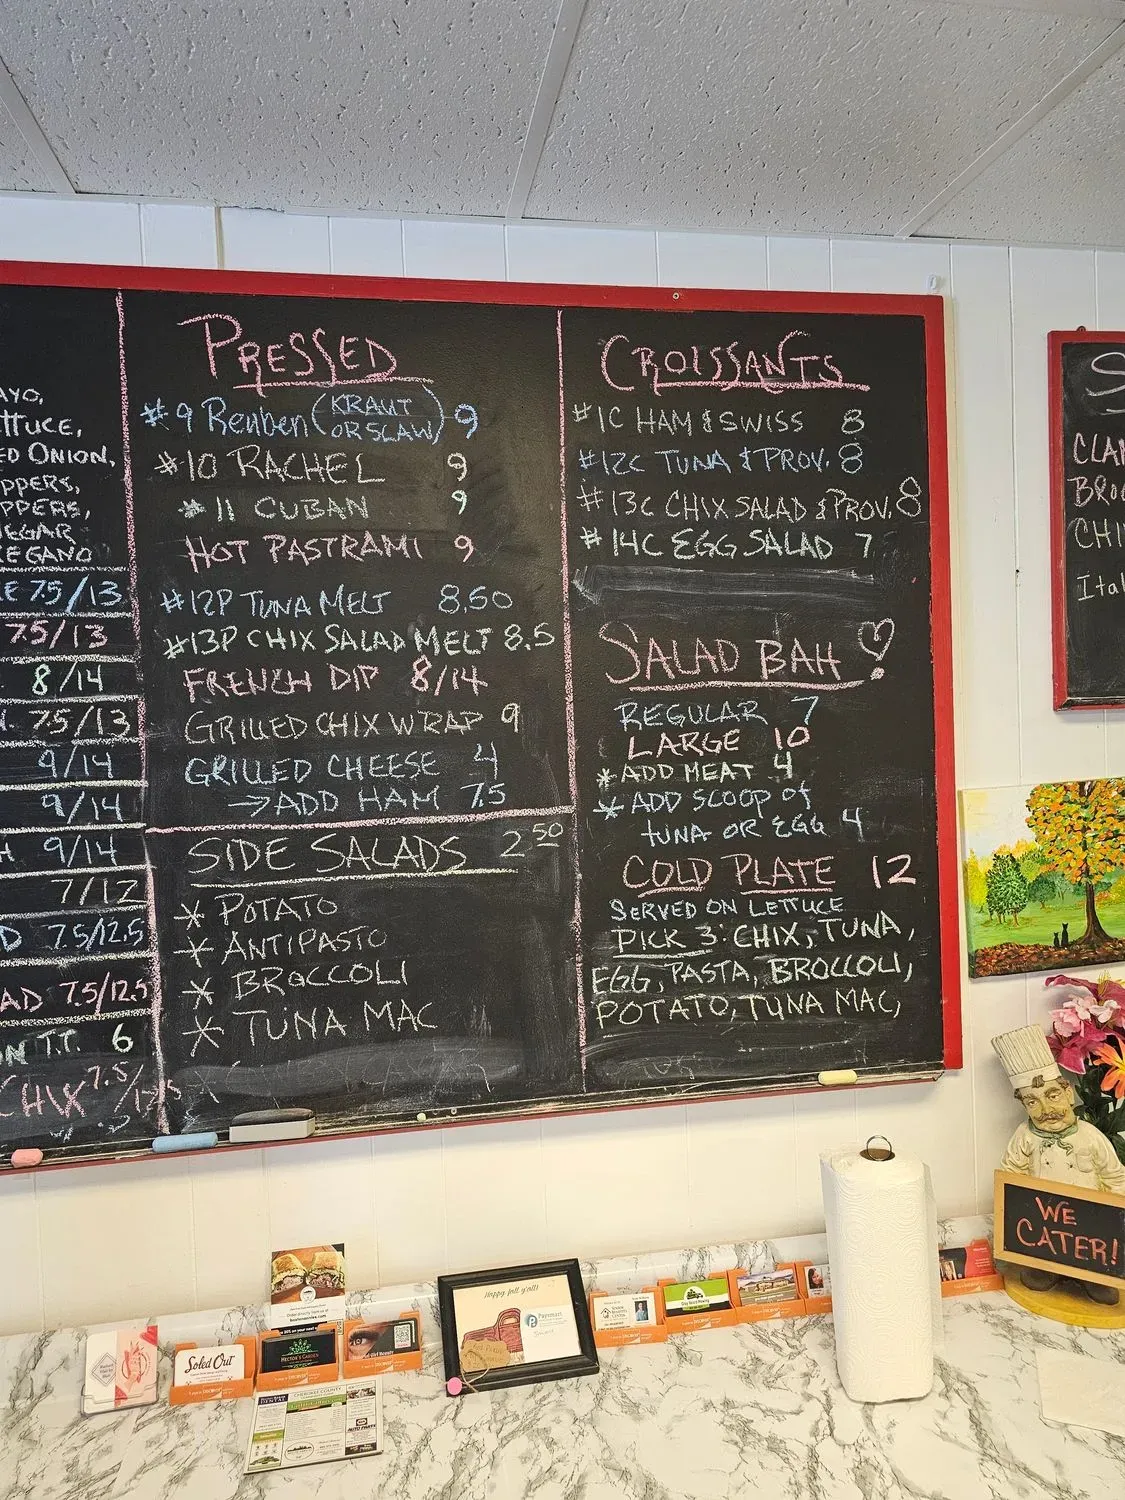 AYO,
ETTUCE,
ED ONION,
PPERS,
PPERS,
NEGAR
REGANO
E 7.5/13
7.5/13
8/14
7.5/13
9/14
9/14
H 9/14
7/12
D 7.5/12.5
AD 7.5/12.5
ON T.T. 6
CHIX 7.5/
PRESSED
#9 Reuben (KRAUT OR SLAW) 9
#10 RACHEL 9
#11 CUBAN 9
HOT PASTRAMI 9
#12P TUNA MELT 8.50
#13P CHIX SALAD MELT 8.5
FRENCH DIP 8/14
GRILLED CHIX WRAP 9
GRILLED CHEESE 4
→ADD HAM 7.5
SIDE SALADS 2 50
* POTATO
* ANTIPASTO
* BROCCOLI
* TUNA MAC
CROISSANTS
#1C HAM & SWISS 8
#12C TUNA & PROV. 8
#13C CHIX SALAD & PROV. 8
#14C EGG SALAD 7
SALAD BAH
REGULAR 7
LARGE 10
*ADD MEAT 4
*ADD SCOOP of
TUNA OR EGG 4
COLD PLATE 12
SERVED ON LETTUCE
PICK 3: CHIX, TUNA,
EGG, PASTA, BROCCOLI,
POTATO, TUNA MAC,
S
CLA
BRO
CHI
Ita
WE
CATER!
Happy fall y'all!
Paysmart
Soled Out
HECTOR'S GARDEN
CHEROKEE COUNTY
AUTO PARTS